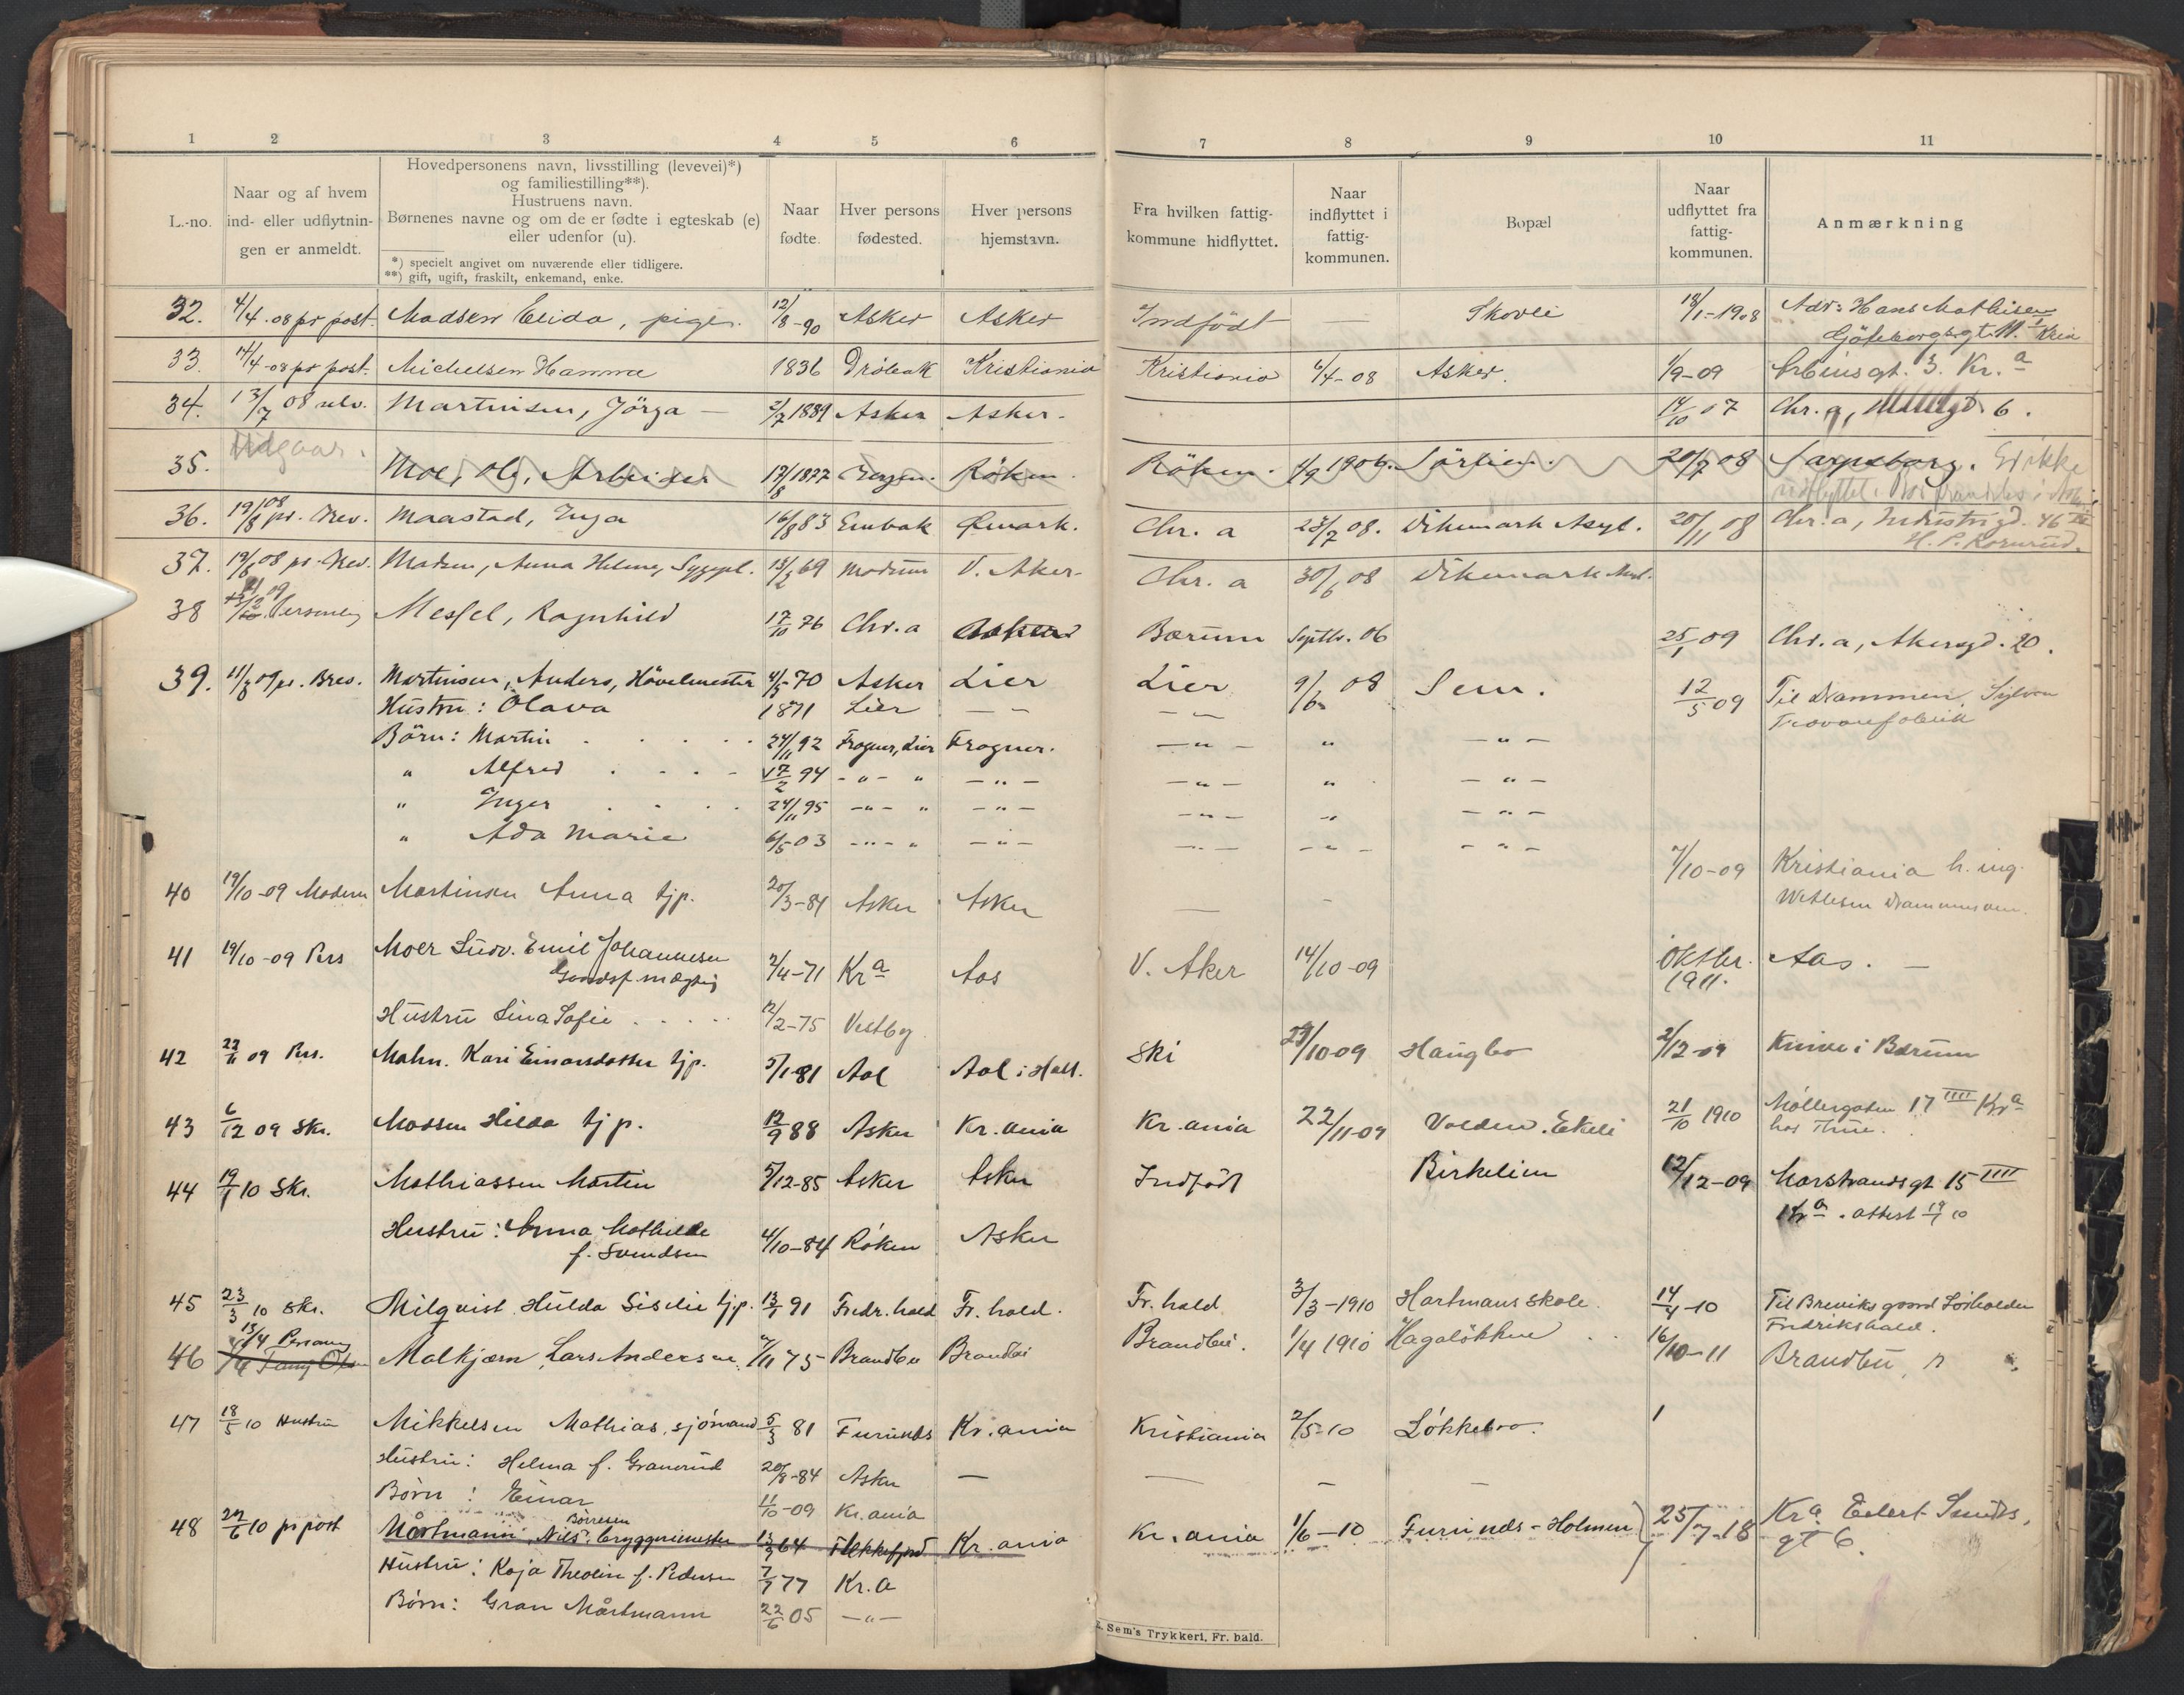 1 2 3 4 5 6 7 8 9 10 11
L.-no.
Naar og af hvem
ind- eller udflytnin-
gen er anmeldt.
Hovedpersonens navn, livsstilling (levevei)*)
og familiestilling**).
Hustruens navn.
Børnenes navne og om de er fødte i egteskab (e)
eller udenfor (u).
*) specielt angivet om nuværende eller tidligere.
**) gift, ugift, fraskilt, enkemand, enke.
Naar
fødte.
Hver persons
fødested.
Hver persons
hjemstavn.
Fra hvilken fattig-
kommune hidflyttet.
Naar
indflyttet i
fattig-
kommunen.
Bopæl
Naar
udflyttet fra
fattig-
kommunen.
Anmærkning
32. 4/4-08 pr post. Madsen Elida, pige. 12/8-90 Asker Asker Indfödt — Skovli 18/1-1908 Adr: Hans Mathisen
Göteborgsgt. 11. Kria
33. 14/4-08 pr post. Michelsen Hanna 1836 Dröbak Kristiania Kristiania 4/4-08 Asker. 1/9-09 gt. 3. Kr.a
34. 13/7 08 Martinsen, Jörga — 2/7 1889 Asker Asker. 14/10 07 Chr.a, 6.
35. Udgaar. Moe, Ole, Arbeider 17/8 1877 Röken. Röken. 1/9 1906. 20/7 08 Sarpsborg. Er ikke
udflyttet.
36. 19/8 08 pr. Brev. Maastad, Inga 16/8 83 Embak Ømark. Chr. a 23/7 08. Dikemark Asyl. 20/11 08 Chr. a, Industrigd. 46 IV
H. P. Kornrud.
37. 19/8 08 pr. Brev. Madsen, Anna Helene, Sygepl. 13/2 69 Modum V. Aker. Chr. a 30/6 08 Dikemark Asyl.
38 Personlig Messel, Ragnhild 17/10 76 Chr. a Bærum Septbr. 06 25/1 09 Chr. a, Akersgd. 20.
39. 11/3 09 pr. Brev. Martinsen, Anders, Hövelmester 4/5 70 Asker Lier Lier 9/6 08 Sem. 12/5 09 Til Drammen, Sylvan
Hustru: Olava 1871 Lier — " — — " — Trævarefabrik
Börn: Martin 24/11 92 Frogner, Lier Frogner. — " — " — " —
" Alfred 17/2 94 — " — " — " — — " — " — " —
" Inger 24/11 95 — " — " — " — — " — " — " —
" Ada Marie 6/5 03 — " — " — " — — " — — " — — " —
40 19/10-09 Moderen Martinsen Anna tjp. 20/3-84 Asker Asker — — 7/10-09 Kristiania h. ing.
Wetlesen Drammensvn.
41 19/10-09 Pers Moer Ludv. Emil Johannesen 2/4-71 Kra Aas V. Aker 14/10-09 Oktbr. 1911. Aas. —
Hustru Lina Sofie 12/2-75 Vestby
42 22/11 09 Pers. Mahn. Kari Einarsdatter tjp. 5/1-81 Aal Aal i Hall. Ski 29/10-09 Haugbo 2/12-09 i Bærum
43 6/12 09 Skr. Madsen Hilda tjp. 12/9 88 Asker Kr. ania Kr. ania 22/11-09 Volden. Ekeli 21/10 1910 Möllergaten 17 IIII Kra
hos Thue.
44 19/1 10 Skr. Mathiassen Martin 5/12-85 Asker Asker Indfödt Birkelien 12/12-09 Marstrandsgt 15 IIII
Kra. attest 19/1 10
Hustru: Anna Mathilde 4/10-84 Röken Asker
f. Svendsen
45 23/3 10 Skr. Milqvist, Hulda Sisilie tjp. 13/1 91 Fredr.hald Fr. hald. Fr. hald 3/3-1910 Hartmans skole. 14/4-10 Til Breviks gaard
Fredrikshald.
46 13/4 Personlig Malkjærn Lars Andersen. 75 Brandbu Brandbu Brandbu. 1/4 1910 Hagalökken 16/10-11 Brandbu
47 18/5 10 Hustru Mikkelsen Mathias, sjömand 5/3 81 Furunds Kr. ania Kristiania 2/5-10 Lökkebro.
Hustru: Helma f. Granerud 20/8-84 Asker — — — —
Börn: Einar 11/10-09 Kr. ania
Börresen
48 24/6 10 pr post Mårtmann, Nils, bryggerimester 13/3 64 Flekkefjord Kr. ania Kr. ania 1/6-10 Furunds-Holmen 25/7-18 Kra Eilert Sunds,
gt 6.
Hustru: Kaja Theoline f. Pedersen 7/7 77 Kr. a
Börn: Gran Mårtmann 22/6 05 — " —
E. Sem's Trykkeri, Fr. hald.